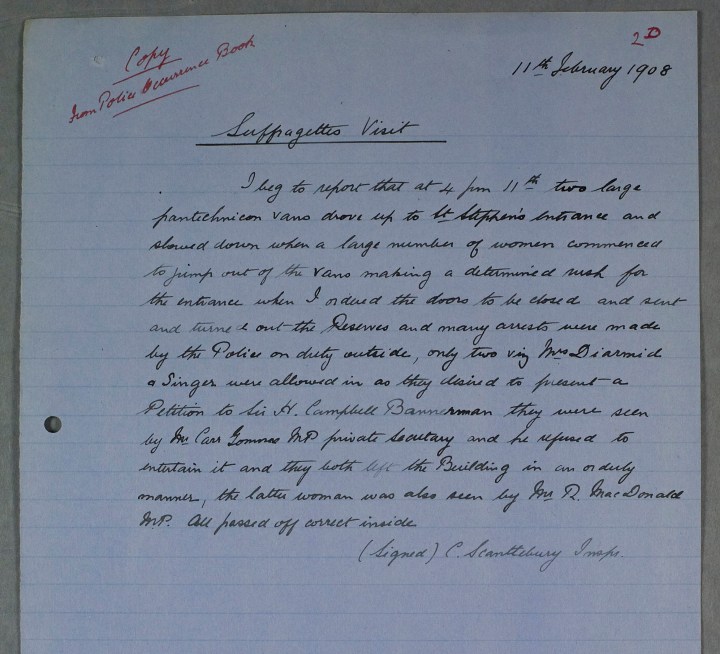 2D
Copy
from Police Occurrence Book
11th February 1908
Suffragettes Visit
I beg to report that at 4 pm 11th two large
pantechnicon vans drove up to St Stephen's entrance and
slowed down when a large number of women commenced
to jump out of the vans making a determined rush for
the entrance when I ordered the doors to be closed and sent
and turned out the Reserves and many arrests were made
by the Police on duty outside, only two viz Mrs Diarmid
& Singer were allowed in as they desired to present a
Petition to Sir H. Campbell Bannerman they were seen
by Mr Carr Gomm MP private Secretary and he refused to
entertain it and they both left the Building in an orderly
manner, the latter woman was also seen by Mr R. MacDonald
M.P. All passed off correct inside
(Signed) C. Scantlebury Inspr.